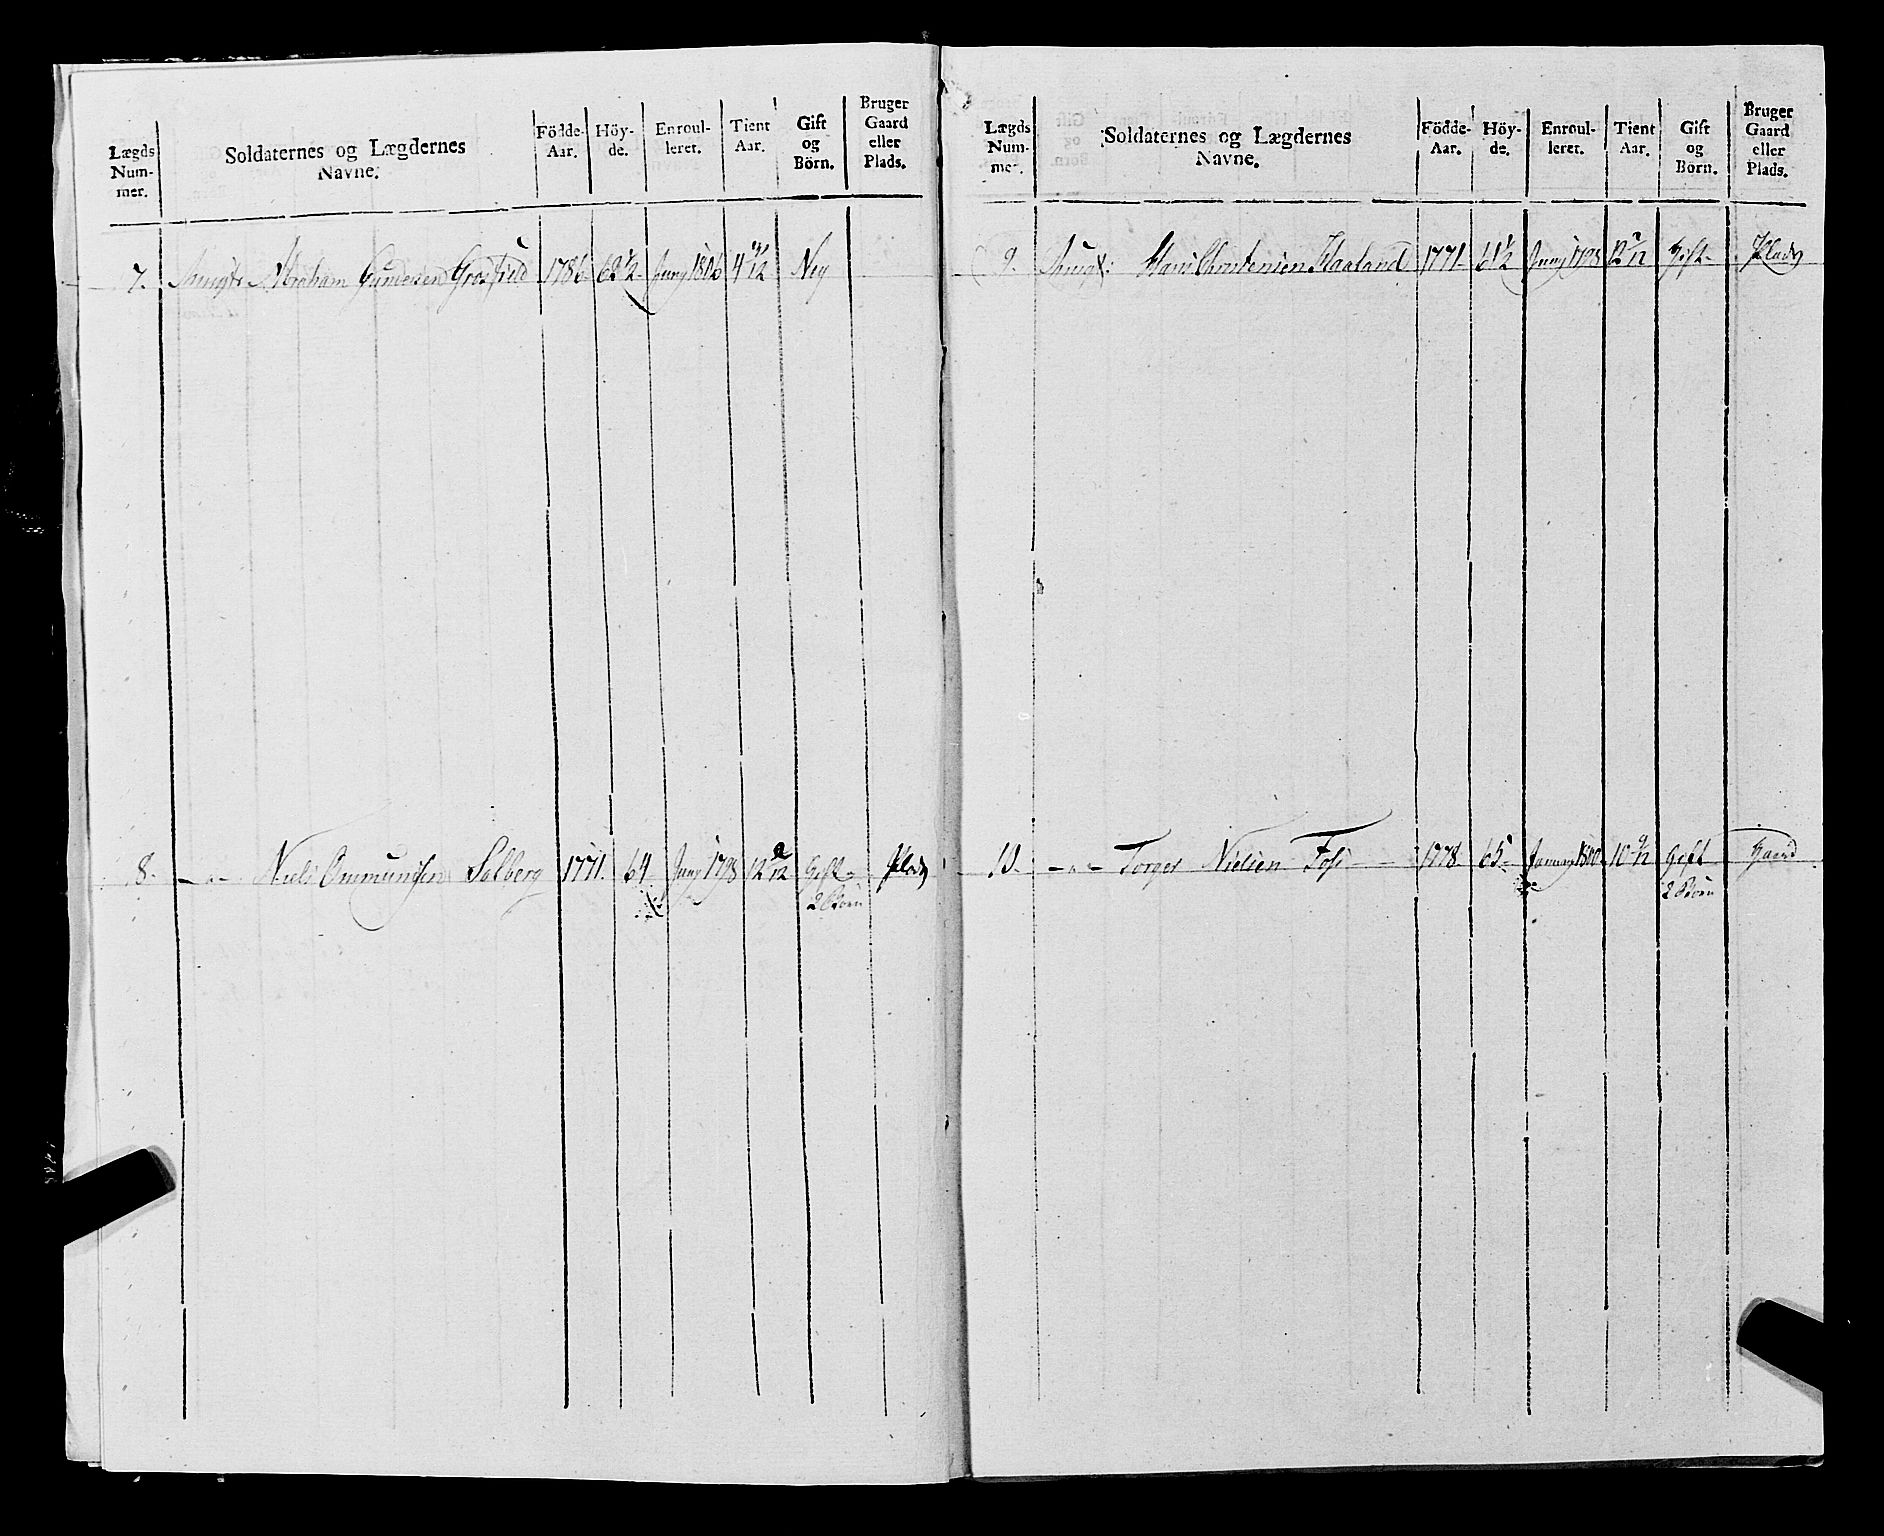 Lægds Num- mer.
Soldaternes og Lægdernes Navne.
Födde- Aar.
Höy- de.
Enroul- leret.
Tient Aar.
Gift og Börn.
Bruger Gaard eller Plads.
7. Abraham Gundersen 1786 62 1/2 Juny 1806 4 Ney
8. -"- Niels Ommundsen Solberg 1771. 64 Juny 1798 12 Gift Plads
2 Börn
Lægds Num- mer.
Soldaternes og Lægdernes Navne.
Födde- Aar.
Höy- de.
Enroul- leret.
Tient Aar.
Gift og Börn.
Bruger Gaard eller Plads.
9. Hans Christensen Haaland 1771. 61 1/2 Juny 1798 12 Gift Plads
10. -"- Torger Nielsen Foss 1778. 65 Januar 1800 10 9/12 Gift Gaard
2 Börn